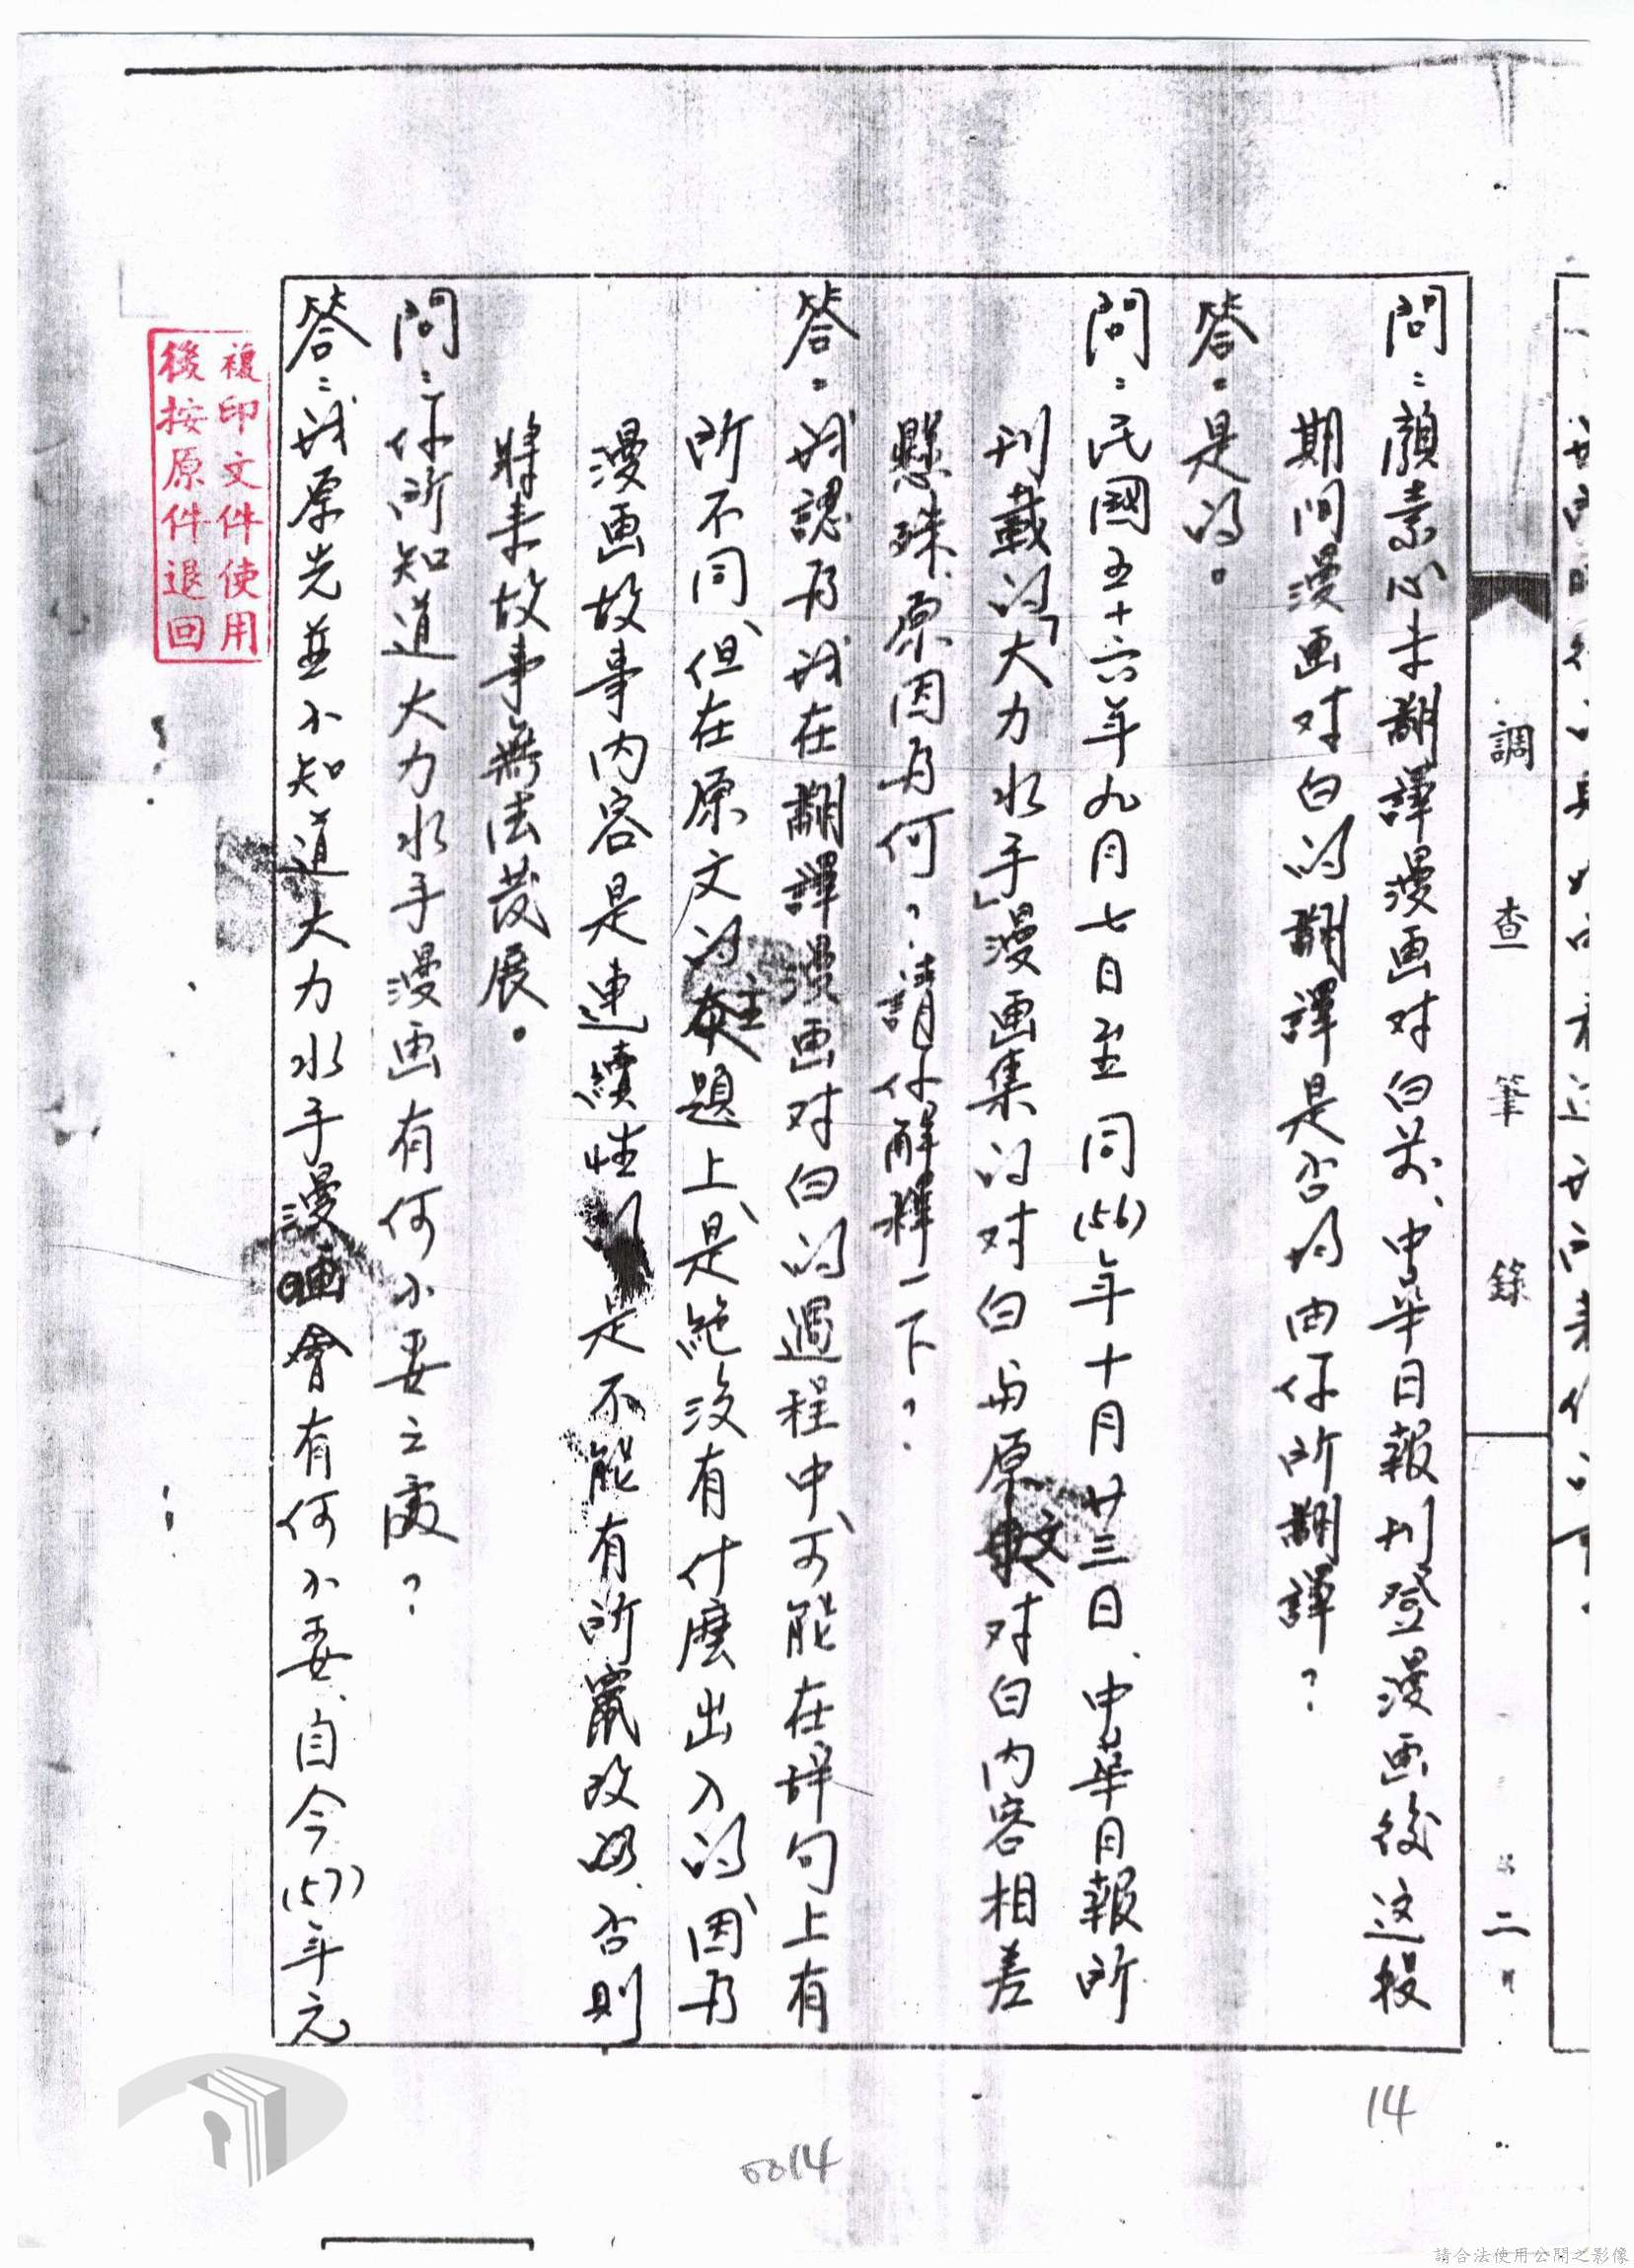 調查筆錄
二
問：顏素心未翻譯漫画对白前、中華日報刊登漫画後這段
期间漫画对白的翻譯是否均由你所翻譯？
答：是的。
問：民國五十六年九月七日至同(56)年十月廿三日、中華日報所
刊載的「大力水手」漫画集的对白与原文对白内容相差
懸殊、原因为何？請你解釋一下？
答：我認为我在翻譯漫画对白的過程中、可能在辞句上有
所不同、但在原文的主題上、是絶沒有什麼出入的、因为
漫画故事内容是連續性是不能有所竄改的、否則
將来故事無法发展。
問：你所知道大力水手漫画有何不妥之處？
答：我原先並不知道大力水手漫画會有何不妥、自今(57)年元
複印文件使用
後按原件退回
14
0014
請合法使用公開之影像